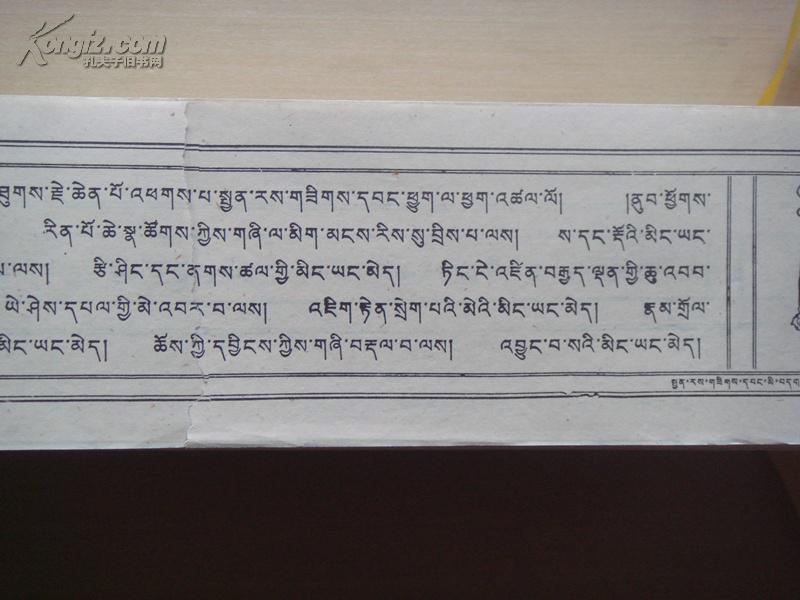 Kongfz.com
孔夫子旧书网
ཐུགས་རྗེ་ཆེན་པོ་འཕགས་པ་སྤྱན་རས་གཟིགས་དབང་ཕྱུག་ལ་ཕྱག་འཚལ་ལོ། །ནུབ་ཕྱོགས་
རིན་པོ་ཆེ་སྣ་ཚོགས་ཀྱིས་གཞི་ལ་མིག་མངས་རིས་སུ་བྲིས་པ་ལས། ས་དང་རྡོའི་མིང་ཡང་
པ་ལས། རྩི་ཤིང་དང་ནགས་ཚལ་གྱི་མིང་ཡང་མེད། ཏིང་ངེ་འཛིན་བརྒྱད་ལྡན་གྱི་ཆུ་འབབ་
ཡེ་ཤེས་དཔལ་གྱི་མེ་འབར་བ་ལས། འཇིག་རྟེན་སྲེག་པའི་མེའི་མིང་ཡང་མེད། རྣམ་གྲོལ་
མིང་ཡང་མེད། ཆོས་ཀྱི་དབྱིངས་ཀྱིས་གཞི་བརྡལ་བ་ལས། འབྱུང་བ་སའི་མིང་ཡང་མེད།
སྤྱན་རས་གཟིགས་དབང་མི་བདག